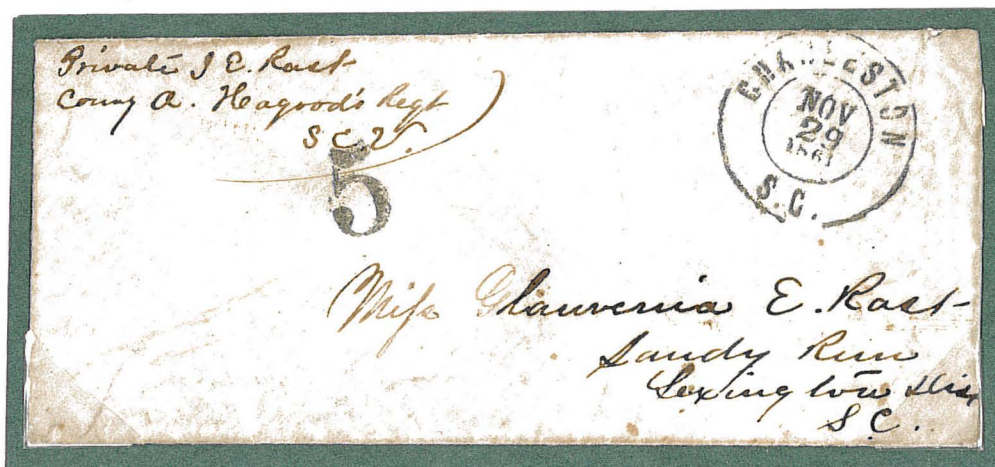 Private J E. Rast
Comy A. Hagood's Regt
S C. V.
5
CHARLESTON
NOV
29
1861
S.C.
Miss Glauvenia E. Rast
Sandy Run
Lexington Dist
S C.